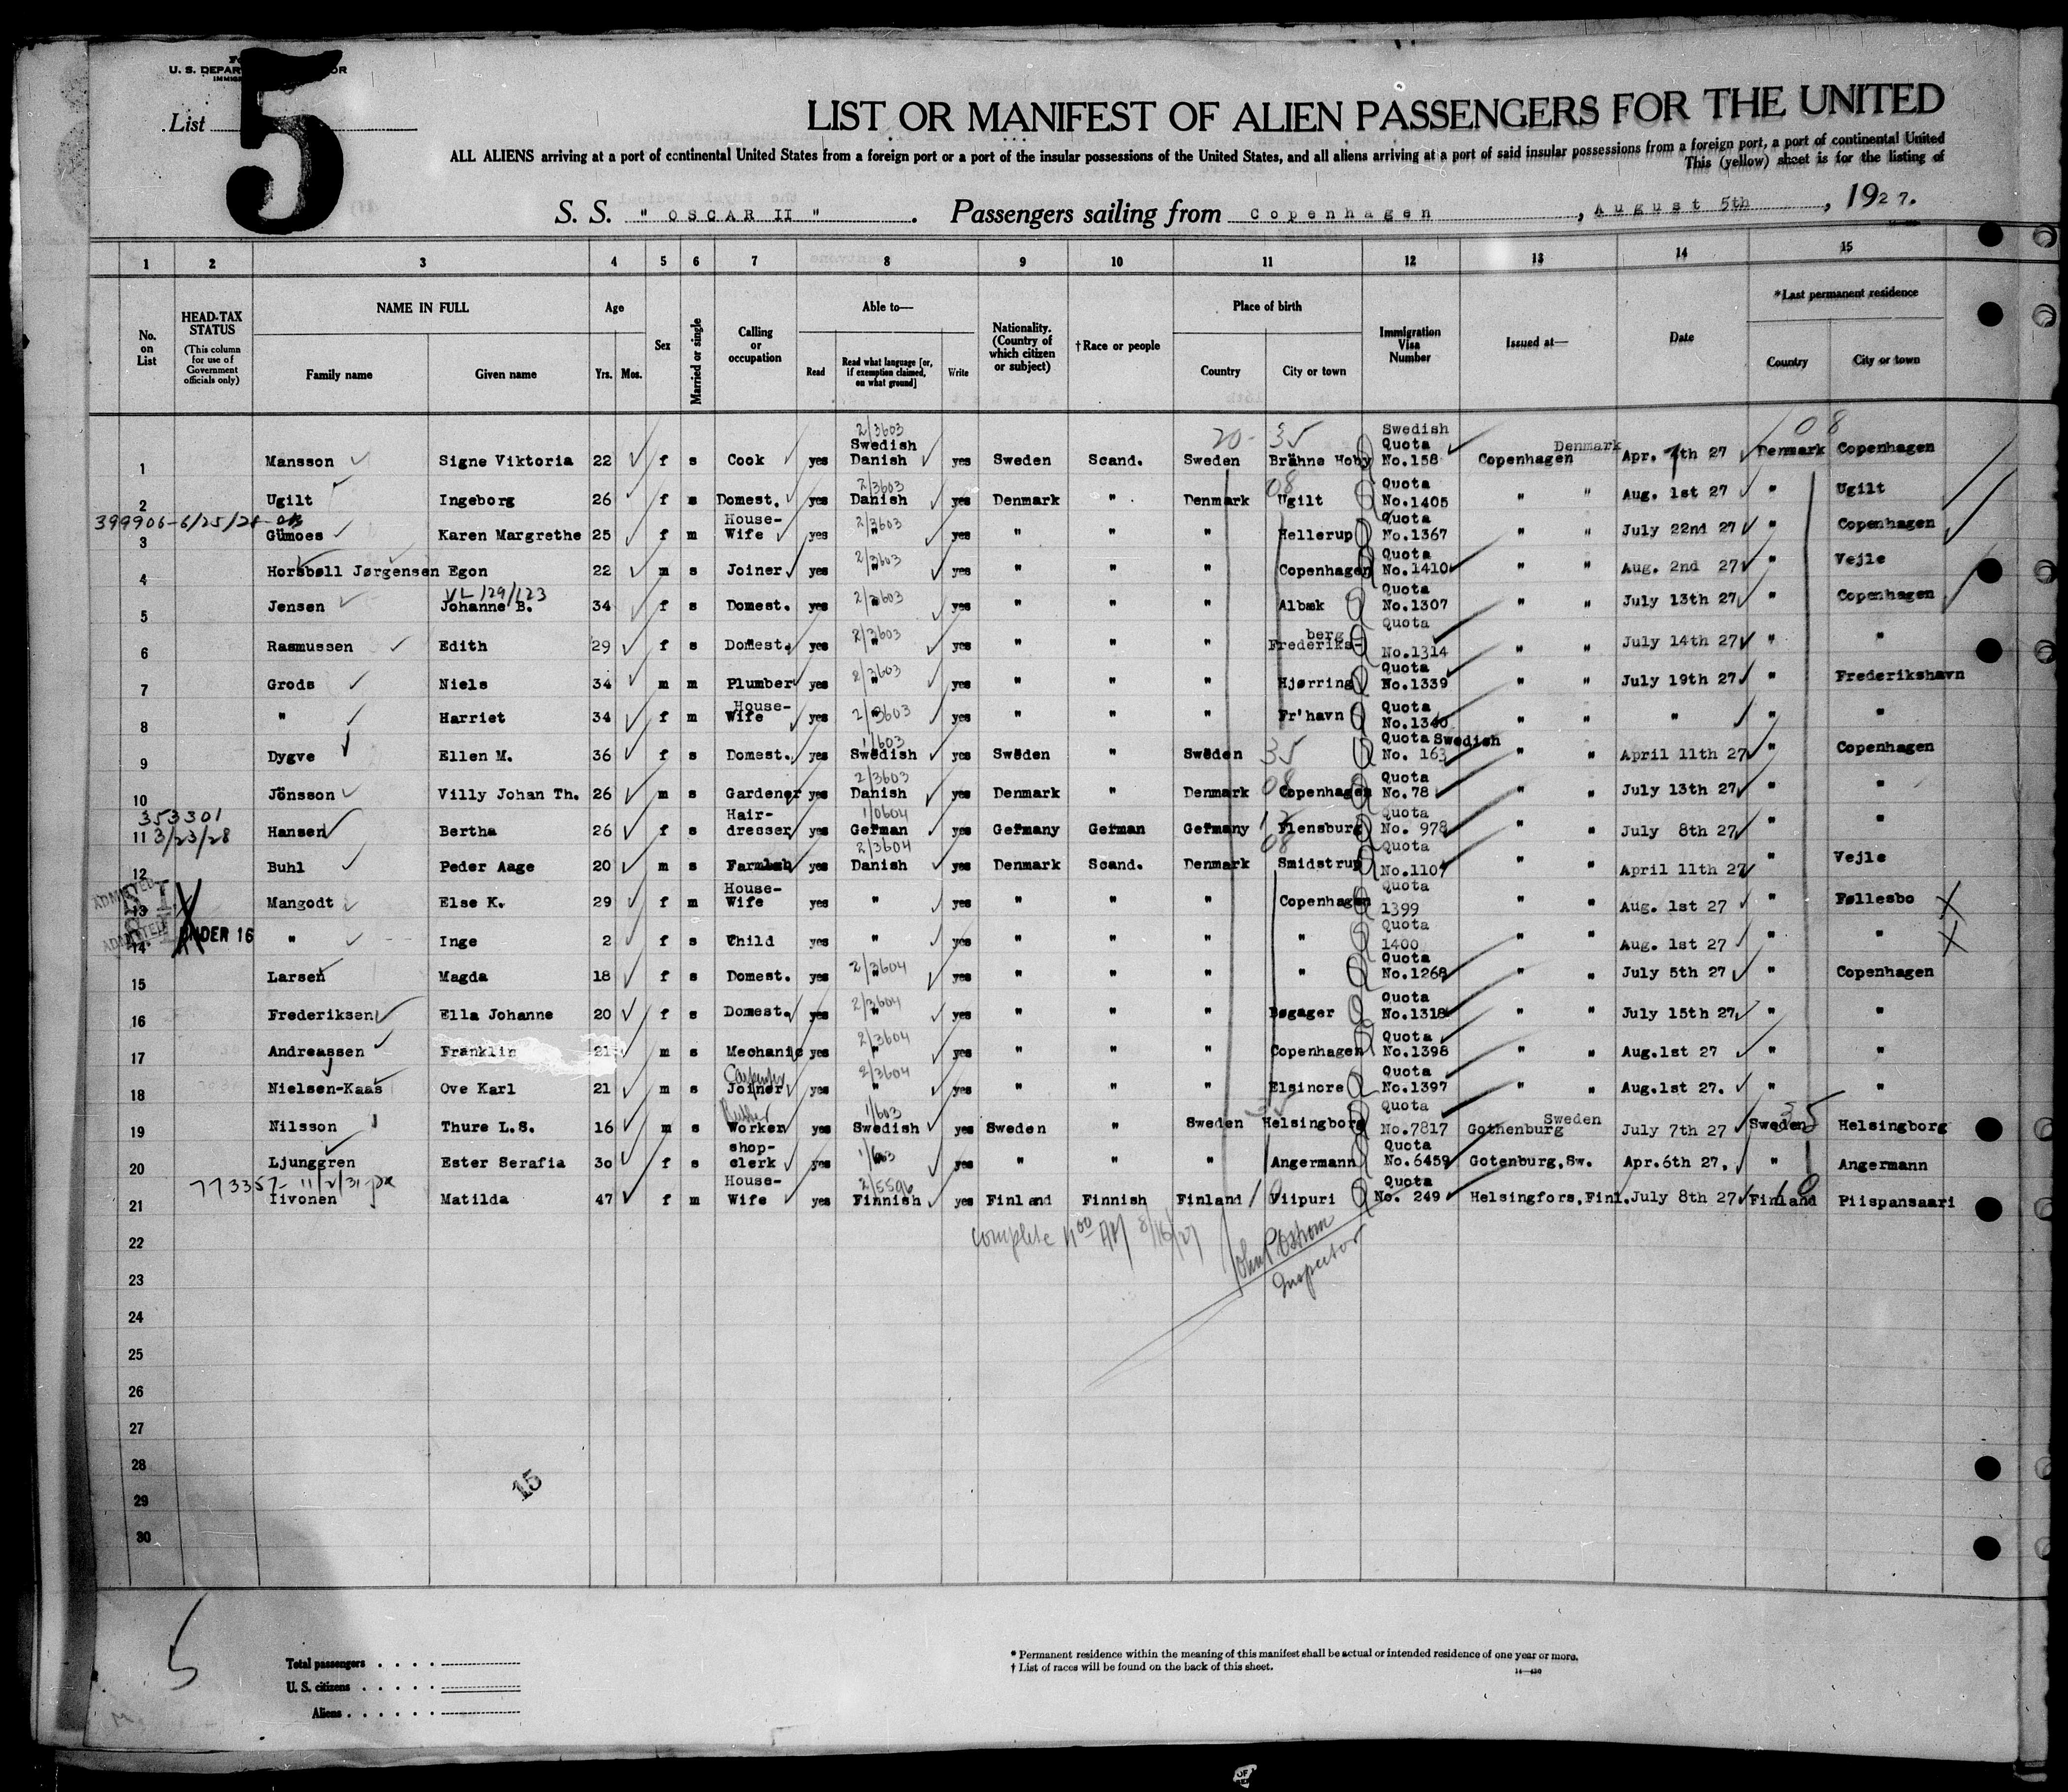 U. S. DEPAR OR
List 5
LIST OR MANIFEST OF ALIEN PASSENGERS FOR THE UNITED
ALL ALIENS arriving at a port of continental United States from a foreign port or a port of the insular possessions of the United States, and all aliens arriving at a port of said insular possessions from a foreign port, a port of continental United
This (yellow) sheet is for the listing of
S. S. " OSCAR II ". Passengers sailing from Copenhagen, August 5th, 1927.
1 2 3 4 5 6 7 8 9 10 11 12 13 14 15
No. on List
HEAD-TAX STATUS (This column for use of Government officials only)
NAME IN FULL Family name Given name
Age Yrs. Mos.
Sex
Married or single
Calling or occupation
Able to— Read Read what language [or, if exemption claimed, on what ground] Write
Nationality. (Country of which citizen or subject)
†Race or people
Place of birth Country City or town
Immigration Visa Number
Issued at—
Date
*Last permanent residence Country City or town
20- 35 08
1 Mansson Signe Viktoria 22 f s Cook yes 2/3603 Swedish Danish yes Sweden Scand. Sweden Brähne Hoby Swedish Quota No.158 Copenhagen Denmark Apr. 7th 27 Denmark Copenhagen
2 Ugilt Ingeborg 26 f s Domest. yes 2/3603 Danish yes Denmark " Denmark 08 Ugilt Quota No.1405 " " Aug. 1st 27 " Ugilt
399906-6/25/28
3 Gümoes Karen Margrethe 25 f m House-Wife yes 2/3603 " yes " " " Hellerup Quota No.1367 " " July 22nd 27 " Copenhagen
4 Horsbøll Jørgensen Egon 22 m s Joiner yes 2/3603 " yes " " " Copenhagen Quota No.1410 " " Aug. 2nd 27 " Vejle
VL 129/123
5 Jensen Johanne B. 34 f s Domest. yes 2/3603 " yes " " " Albæk Quota No.1307 " " July 13th 27 " Copenhagen
6 Rasmussen Edith 29 f s Domest. yes 2/3603 " yes " " " Frederiks-berg Quota No.1314 " " July 14th 27 " "
7 Grods Niels 34 m m Plumber yes 2/3603 " yes " " " Hjørring Quota No.1339 " " July 19th 27 " Frederikshavn
8 " Harriet 34 f m House-Wife yes 2/3603 " yes " " " Fr'havn Quota No.1340 " " " " "
9 Dygve Ellen M. 36 f s Domest. yes 1/603 Swedish yes Sweden " Sweden 35 Quota Swedish No. 163 " " April 11th 27 " Copenhagen
10 Jönsson Villy Johan Th. 26 m s Gardener yes 2/3603 Danish yes Denmark " Denmark 08 Copenhagen Quota No.78 " " July 13th 27 " "
353301
3/23/28
11 Hansen Bertha 26 f s Hair-dresser yes 1/0604 German yes Germany German Germany Flensburg Quota No. 978 " " July 8th 27 " "
12 Buhl Peder Aage 20 m s yes 2/3604 Danish yes Denmark Scand. Denmark 08 Smidstrup Quota No.1107 " " April 11th 27 " Vejle
ADMITTED
13 Mangodt Else K. 29 f m House-Wife yes " yes " " " Copenhagen Quota 1399 " " Aug. 1st 27 " Føllesbo
ADMITTED
14 UNDER 16 " Inge 2 f s Child yes " yes " " " " Quota 1400 " " Aug. 1st 27 " "
15 Larsen Magda 18 f s Domest. yes 2/3604 " yes " " " " Quota No.1268 " " July 5th 27 " Copenhagen
16 Frederiksen Ella Johanne 20 f s Domest. yes 2/3604 " yes " " " Bøgager Quota No.1318 " " July 15th 27 " "
17 Andreassen Franklin 21 m s Mechanic yes 2/3604 " yes " " " Copenhagen Quota No.1398 " " Aug.1st 27 " "
18 Nielsen-Kaas Ove Karl 21 m s Carpenter Joiner yes 2/3604 " yes " " " Elsinore Quota No.1397 " " Aug.1st 27. " "
19 Nilsson Thure L.S. 16 m s Rubber Worker yes 1/603 Swedish yes Sweden " Sweden 35 Helsingborg Quota No.7817 Gothenburg Sweden July 7th 27 Sweden 35 Helsingborg
20 Ljunggren Ester Serafia 30 f s shop-clerk yes 1/603 " yes " " " Angermann Quota No.6459 Gotenburg,Sw. Apr.6th 27. " Angermann
773357- 11/2/31
21 Iivonen Matilda 47 f m House-Wife yes 2/5596 Finnish yes Finland Finnish Finland 10 Viipuri Quota No. 249 Helsingfors,Finl. July 8th 27 Finland 10 Piispansaari
22 complete 11 00 AM 8/16/27 John P. Oshom
23 Inspector
24
25
26
27
28
29 15
30
5
Total passengers . . . .
U. S. citizens . . . . .
Aliens . . . . . .
* Permanent residence within the meaning of this manifest shall be actual or intended residence of one year or more.
† List of races will be found on the back of this sheet.
14—430